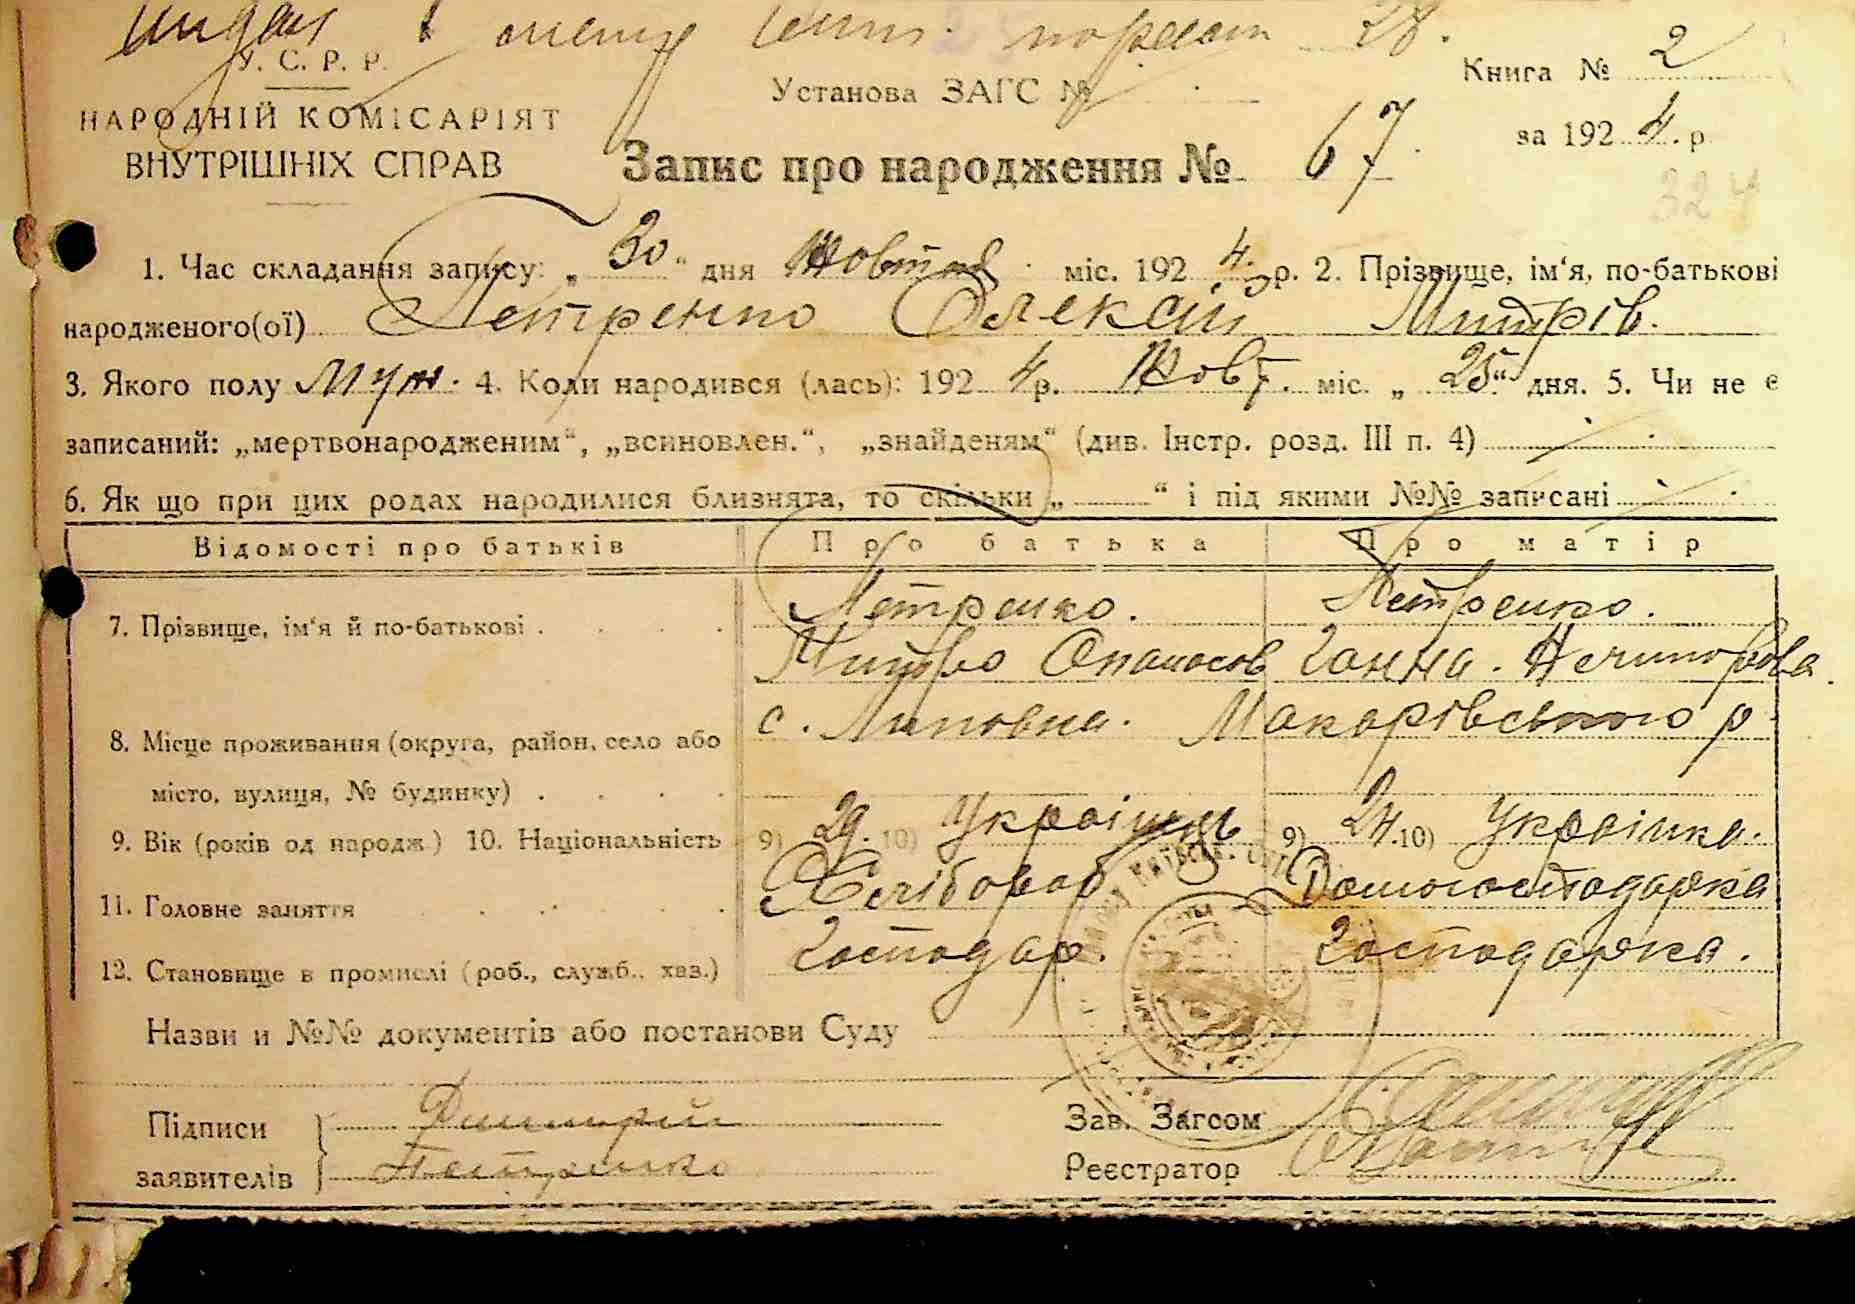 У. С. Р. Р.
НАРОДНІЙ КОМІСАРІЯТ
ВНУТРІШНІХ СПРАВ
Установа ЗАГС №
Книга № 2
за 1924 р.
Запис про народження № 67
324
1. Час складання запису: „30“ дня Жовтня міс. 1924 р. 2. Прізвище, ім‘я, по-батькові
народженого(ої) Петренко Олексій Митрів.
3. Якого полу Муж. 4. Коли народився (лась): 1924 р. Жовт. міс. „25“ дня. 5. Чи не є
записаний: „мертвонародженим“, „всиновлен.“, „знайденям“ (див. Інстр. розд. III п. 4)
6. Як що при цих родах народилися близнята, то скільки „ “ і під якими №№ записані
Відомості про батьків Про батька Про матір
7. Прізвище, ім‘я й по-батькові . Петренко. Петренко.
Митро Опанасов Ганна. Нечипорова.
8. Місце проживання (округа, район, село або с. Липовка. Макарівського р.
місто, вулиця, № будинку) .
9. Вік (років од народж.) 10. Національність 9) 29. 10) Українець 9) 24. 10) Українка.
11. Головне заляття Хлібороб Домогосподарка
12. Становище в промислі (роб., служб., хаз.) Господар. Господарка.
Назви и №№ документів або постанови Суду
Підписи Дмитрий Зав. Загсом
заявителів Петренко Реєстратор